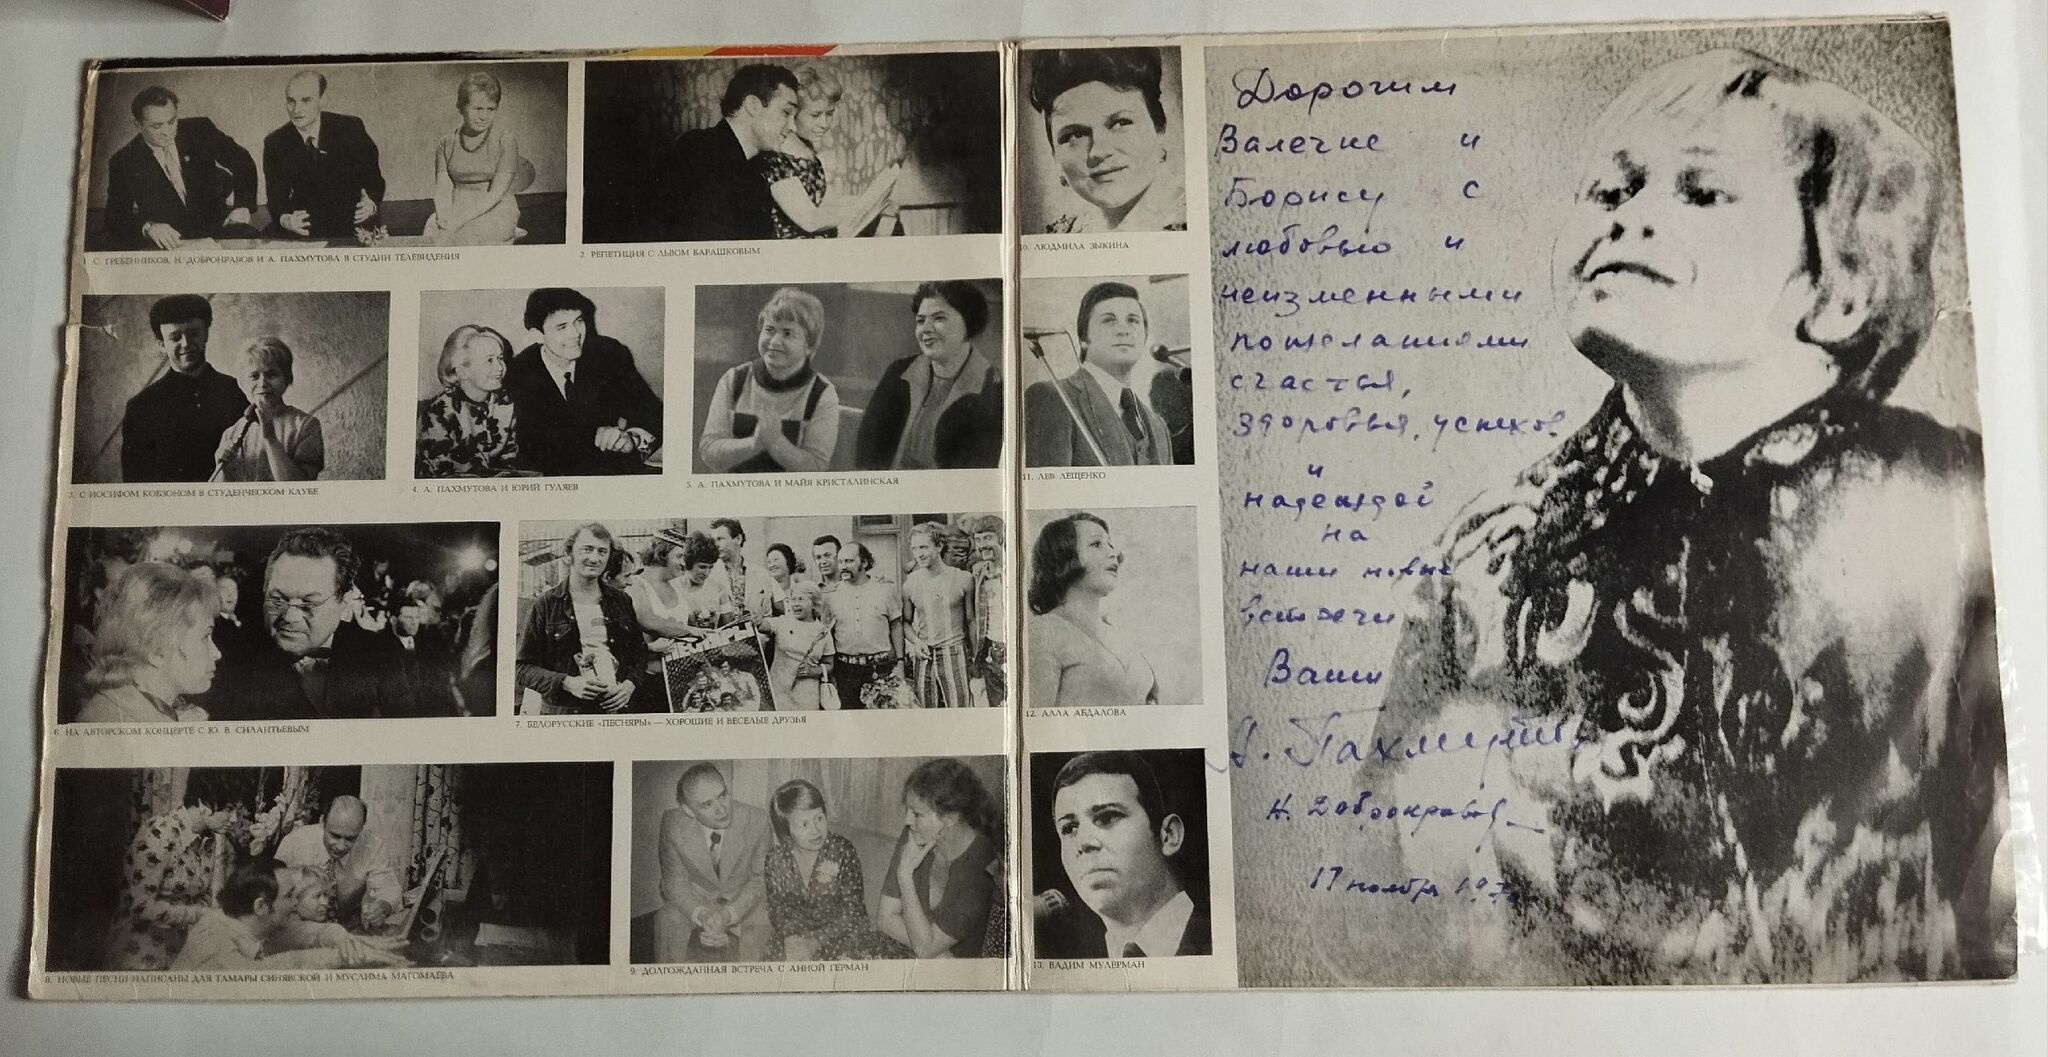 1. С. ГРЕБЕННИКОВ, Н. ДОБРОНРАВОВ И А. ПАХМУТОВА В СТУДИИ ТЕЛЕВИДЕНИЯ
2. РЕПЕТИЦИЯ С ЛЬВОМ БАРАШКОВЫМ
3. С ИОСИФОМ КОБЗОНОМ В СТУДЕНЧЕСКОМ КЛУБЕ
4. А. ПАХМУТОВА И ЮРИЙ ГУЛЯЕВ
5. А. ПАХМУТОВА И МАЙЯ КРИСТАЛИНСКАЯ
6. НА АВТОРСКОМ КОНЦЕРТЕ С Ю. В. СИЛАНТЬЕВЫМ
7. БЕЛОРУССКИЕ «ПЕСНЯРЫ» — ХОРОШИЕ И ВЕСЕЛЫЕ ДРУЗЬЯ
8. НОВЫЕ ПЕСНИ НАПИСАНЫ ДЛЯ ТАМАРЫ СИНЯВСКОЙ И МУСЛИМА МАГОМАЕВА
9. ДОЛГОЖДАННАЯ ВСТРЕЧА С АННОЙ ГЕРМАН
10. ЛЮДМИЛА ЗЫКИНА
11. ЛЕВ ЛЕЩЕНКО
12. АЛЛА АБДАЛОВА
13. ВАДИМ МУЛЕРМАН
Дорогим
Валечке и
Борису с
любовью и
неизменными
пожеланиями
счастья,
здоровья, успехов
и
надеждой
на
наши новые
встречи
Ваши
А. Пахмутова
Н. Добронравов
17 ноября